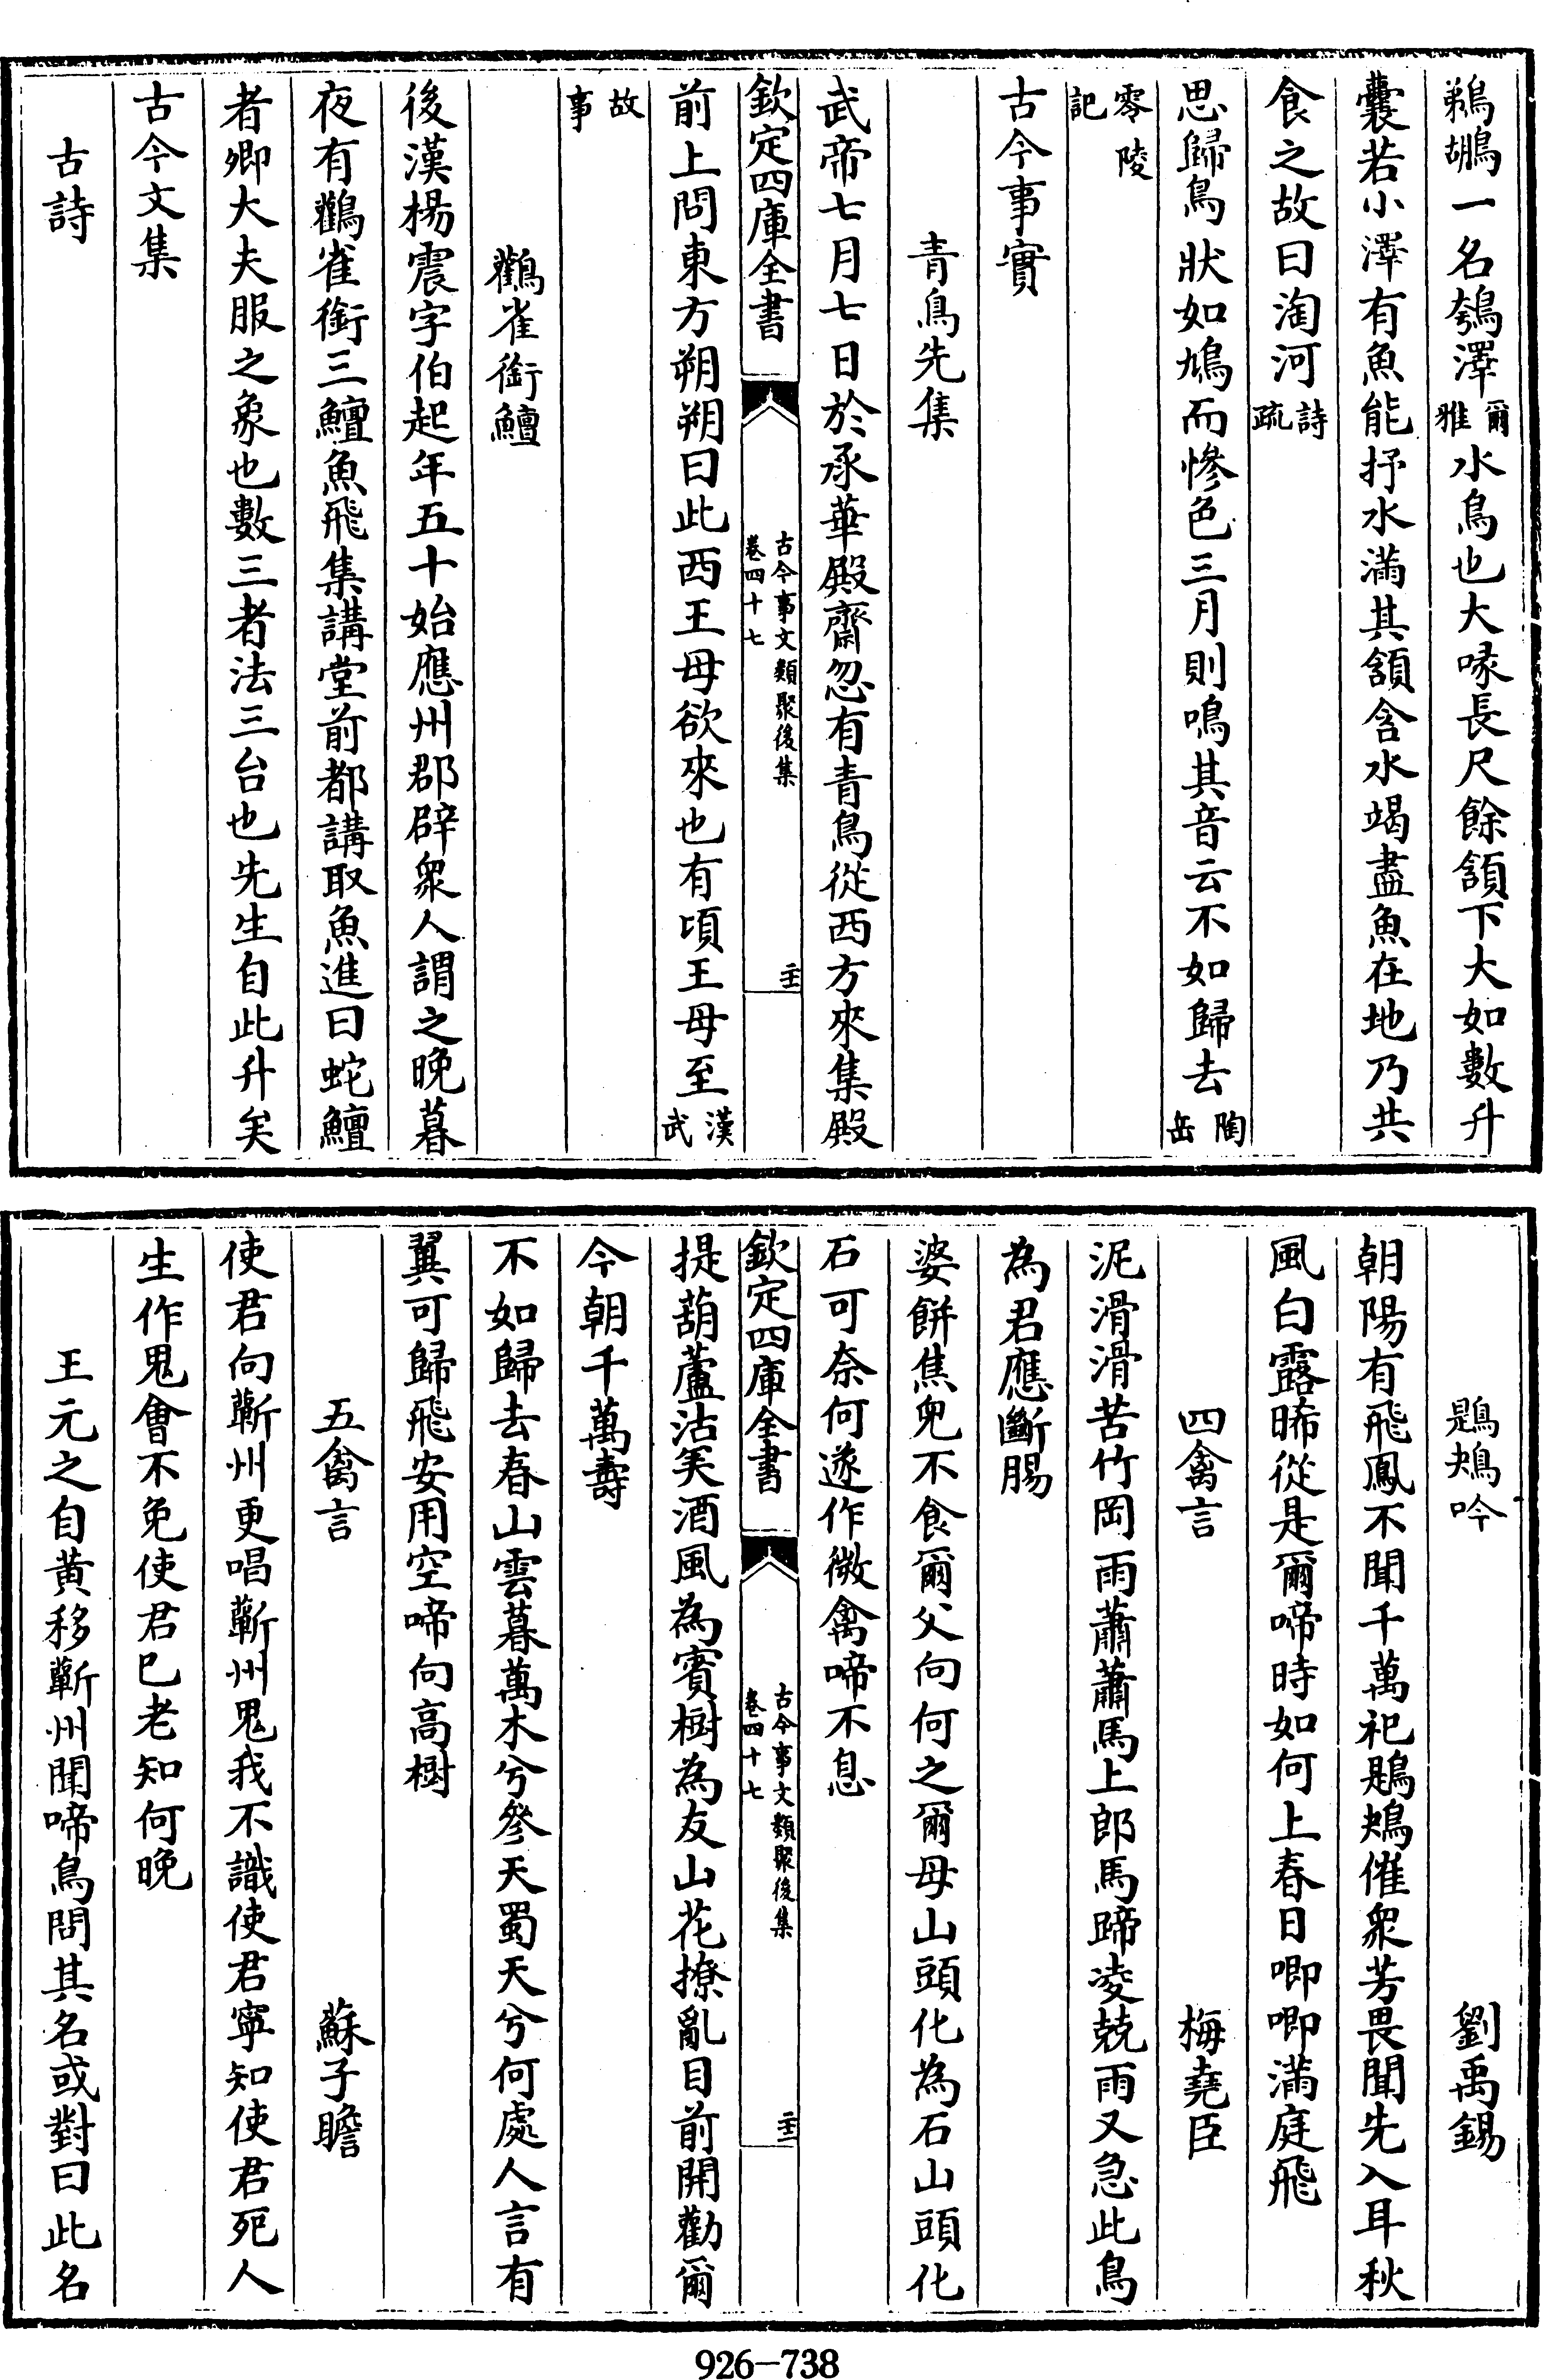 鵜鶘一名鴮澤爾雅水鳥也大喙長尺餘頷下大如數升
囊若小澤有魚能抒水滿其頷含水竭盡魚在地乃共
食之故曰淘河詩疏
思歸鳥狀如鳩而慘色三月則鳴其音云不如歸去陶岳
零陵記
古今事實
青鳥先集
武帝七月七日於承華殿齋忽有青鳥從西方來集殿
欽定四庫全書 古今事文類聚後集 卷四十七
前上問東方朔朔曰此西王母欲來也有頃王母至漢武
故事
鸛雀銜鱣
後漢楊震字伯起年五十始應州郡辟衆人謂之晚暮
夜有鸛雀銜三鱣魚飛集講堂前都講取魚進曰蛇鱣
者卿大夫服之象也數三者法三台也先生自此升矣
古今文集
古詩
鶗鴂吟 劉禹錫
朝陽有飛鳳不聞千萬祀鶗鴂催衆芳畏聞先入耳秋
風白露晞從是爾啼時如何上春日唧唧滿庭飛
四禽言 梅堯臣
泥滑滑苦竹岡雨蕭蕭馬上郎馬蹄凌兢雨又急此鳥
為君應斷腸
婆餅焦兒不食爾父向何之爾母山頭化為石山頭化
石可奈何遂作微禽啼不息
欽定四庫全書 古今事文類聚後集 卷四十七
提葫蘆沽美酒風為賓樹為友山花撩亂目前開勸爾
今朝千萬壽
不如歸去春山雲暮萬木兮參天蜀天兮何處人言有
翼可歸飛安用空啼向高樹
五禽言 蘇子瞻
使君向蘄州更唱蘄州鬼我不識使君寧知使君死人
生作鬼會不免使君已老知何晚
王元之自黄移蘄州聞啼鳥問其名或對曰此名
926-738